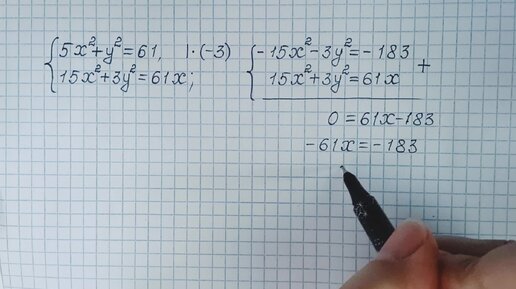 {5x²+y²=61, |·(-3)
15x²+3y²=61x;
{-15x²-3y²=-183
15x²+3y²=61x +
0=61x-183
-61x=-183